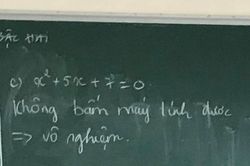 BẬC HAI
c) x² + 5x + 7 = 0
Không bấm máy tính được
=> vô nghiệm.